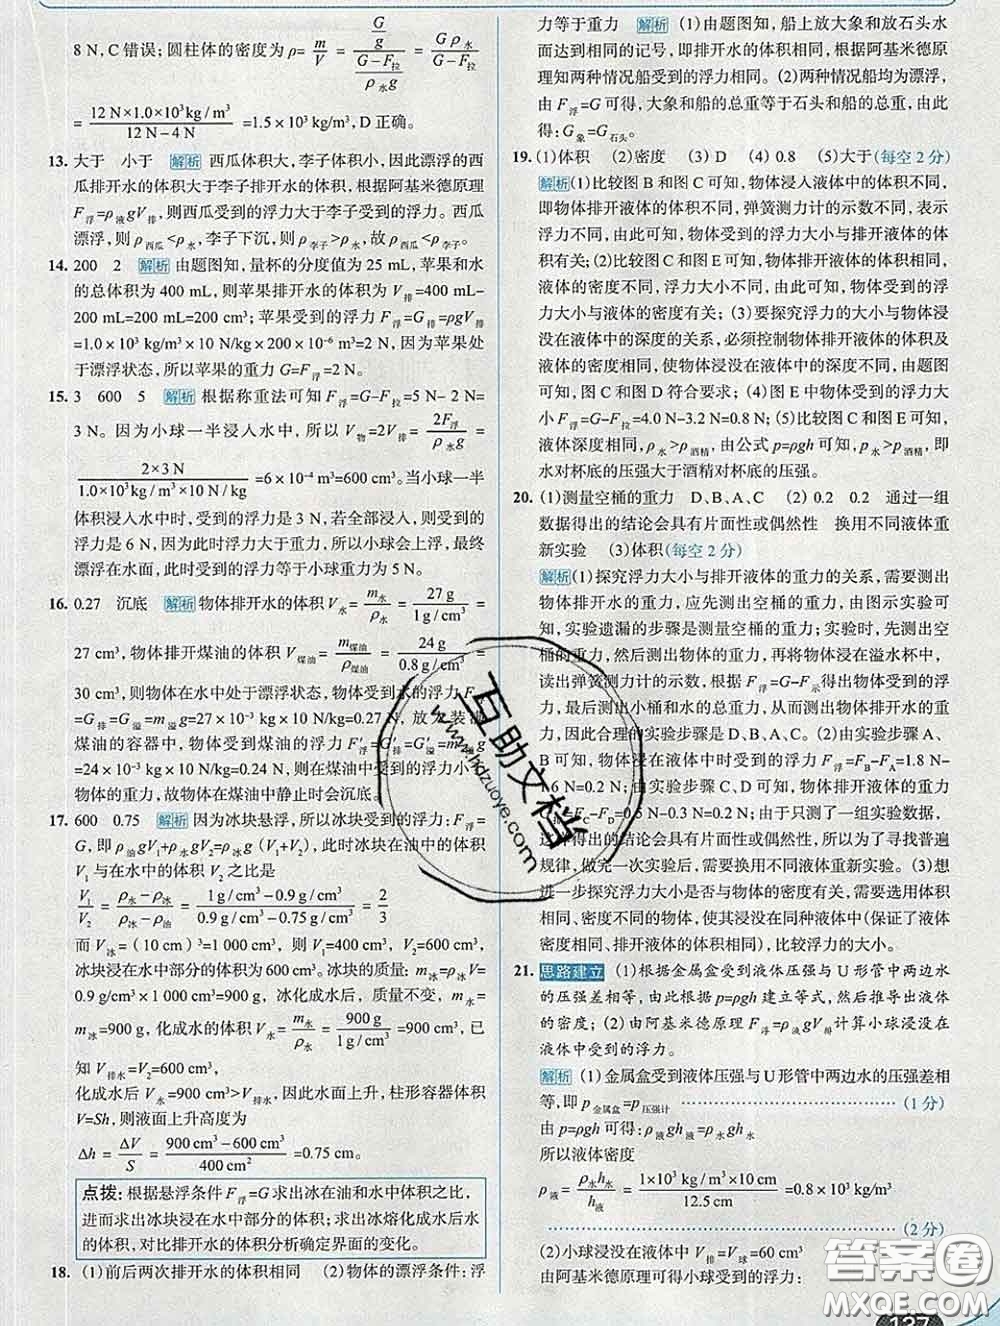 8 N, C 错误；圆柱体的密度为 ρ = m/V = (G/g)/((G−F拉)/(ρ水g)) = Gρ水/(G−F拉)
= (12 N×1.0×10³kg/m³)/(12 N−4 N) =1.5×10³ kg/m³, D 正确。
13. 大于 小于 解析 西瓜体积大，李子体积小，因此漂浮的西
瓜排开水的体积大于李子排开水的体积，根据阿基米德原理
F浮=ρ液gV排，则西瓜受到的浮力大于李子受到的浮力。西瓜
漂浮，则 ρ西瓜<ρ水，李子下沉，则 ρ李子>ρ水，故 ρ西瓜<ρ李子。
14. 200 2 解析 由题图知，量杯的分度值为 25 mL，苹果和水
的总体积为 400 mL，则苹果排开水的体积为 V排=400 mL-
200 mL=200 mL=200 cm³；苹果受到的浮力 F浮=G排=ρgV排
=1.0 × 10³ kg/m³×10 N/kg×200 ×10⁻⁶ m³=2 N。因为苹果处
于漂浮状态，所以苹果的重力 G=F浮=2 N。
15. 3 600 5 解析 根据称重法可知 F浮=G-F拉=5 N- 2 N=
3 N。因为小球一半浸入水中，所以 V物=2V排 = 2F浮/(ρ水g) =
(2×3 N)/(1.0×10³kg/m³×10 N/kg) =6 ×10⁻⁴ m³=600 cm³。当小球一半
体积浸入水中时，受到的浮力是 3 N，若全部浸入，则受到的
浮力是 6 N，因为此时浮力大于重力，所以小球会上浮，最终
漂浮在水面，此时受到的浮力等于小球重力为 5 N。
16. 0.27 沉底 解析 物体排开水的体积 V水= m水/ρ水 = 27 g/(1g/cm³) =
27 cm³，物体排开煤油的体积 V煤油= m煤油/ρ煤油 = 24 g/(0.8 g/cm³) =
30 cm³，则物体在水中处于漂浮状态，物体受到水的浮力 F
=G排=G溢=m溢g=27×10⁻³ kg×10 N/kg=0.27 N，放
煤油的容器中，物体受到煤油的浮力 F′浮=G′排=G′溢=m g
=24 ×10⁻³ kg×10 N/kg=0.24 N，则在煤油中受到的浮力小
物体的重力，故物体在煤油中静止时会沉底。
17. 600 0.75 解析 因为冰块悬浮，所以冰块受到的浮力：F浮=
G，即 ρ油gV₁+ρ水gV₂=ρ冰g(V₁+V₂)，此时冰块在油中的体积
V₁与在水中的体积 V₂之比是
V₁/V₂ = (ρ水−ρ冰)/(ρ冰−ρ油) = (1 g/cm³−0.9 g/cm³)/(0.9 g/cm³−0.75 g/cm³) = 2/3
而 V冰= (10 cm) ³=1 000 cm³，则 V₁=400 cm³，V₂=600 cm³，
冰块浸在水中部分的体积为 600 cm³。冰块的质量 m冰=ρ冰V=
0.9 g/cm³×1 000 cm³=900 g，冰化成水后，质量不变，m水=
m冰=900 g，化成水的体积 V水= m水/ρ水 = 900 g/(1g/cm³) =900 cm³，已
知 V排水=V₂=600 cm³，
化成水后 V水=900 cm³>V排水，因此水面上升，柱形容器体积
V=Sh，则液面上升高度为
Δh = ΔV/S = (900 cm³−600 cm³)/(400 cm²) =0.75 cm。
点拨：根据悬浮条件 F浮=G求出冰在油和水中体积之比，
进而求出冰块浸在水中部分的体积；求出冰熔化成水后水
的体积，对比排开水的体积分析确定界面的变化。
18. (1)前后两次排开水的体积相同 (2)物体的漂浮条件：浮
力等于重力 解析 (1)由题图知，船上放大象和放石头水
面达到相同的记号，即排开水的体积相同，根据阿基米德原
理知两种情况船受到的浮力相同。(2)两种情况船均为漂浮，
由 F浮=G 可得，大象和船的总重等于石头和船的总重，由此
得：G象=G石头。
19. (1)体积 (2)密度 (3) D (4) 0.8 (5)大于(每空 2 分)
解析(1)比较图 B 和图 C 可知，物体浸入液体中的体积不同，
即物体排开液体的体积不同，弹簧测力计的示数不同，表示
浮力不同，由此可知，物体受到的浮力大小与排开液体的体
积有关；(2)比较图 C 和图 E 可知，物体浸没在不同液体中，
液体的密度不同，浮力大小不同，由此可知，物体受到的浮
力大小与液体的密度有关；(3)要探究浮力的大小与物体浸
没在液体中的深度的关系，必须控制物体排开液体的体积及
液体的密度相同，使物体浸没在液体中的深度不同，由题图
可知，图 C 和图 D 符合要求；(4)图 E 中物体受到的浮力大
小 F浮=G-F拉=4.0 N-3.2 N=0.8 N；(5)比较图 C 和图 E 可知，
液体深度相同，ρ水>ρ酒精，由公式 p=ρgh 可知，p水>p酒精，即
水对杯底的压强大于酒精对杯底的压强。
20. (1)测量空桶的重力 D、B、A、C (2) 0.2 0.2 通过一组
数据得出的结论会具有片面性或偶然性 换用不同液体重
新实验 (3)体积(每空 2 分)
解析(1)探究浮力大小与排开液体的重力的关系，需要测出
物体排开水的重力，应先测出空桶的重力，由图示实验可
知，实验遗漏的步骤是测量空桶的重力；实验时，先测出空
桶的重力，然后测出物体的重力，再将物体浸没在溢水杯中，
读出弹簧测力计的示数，根据 F浮=G-F示得出物体受到的浮
力，最后测出小桶和水的总重力，从而测出物体排开水的重
力，因此合理的实验步骤是 D、B、A、C。(2)由实验步骤 A、
B 可知，物体浸在液体中时受到的浮力 F浮=FB-FA=1.8 N-
1.6 N=0.2 N；由实验步骤 D、C 可知，物体排开液体的重力
=FC-FD=0.5 N-0.3 N=0.2 N；由于只测了一组实验数据，
得出的结论会具有片面性或偶然性，所以为了寻找普遍
规律，做完一次实验后，需要换用不同液体重新实验。(3)想
进一步探究浮力大小是否与物体的密度有关，需要选用体积
相同、密度不同的物体，使其浸没在同种液体中(保证了液体
密度相同、排开液体的体积相同)，比较浮力的大小。
21. 思路建立 (1)根据金属盒受到液体压强与 U 形管中两边水
的压强差相等，由此根据 p=ρgh 建立等式，然后推导出液体
的密度；(2)由阿基米德原理 F浮=ρ液gV排计算小球浸没在
液体中受到的浮力。
解析 (1)金属盒受到液体压强与 U 形管中两边水的压强差相
等，即 p金属盒=p压强计 (1 分)
由 p=ρgh 可得：ρ液gh液=ρ水gh水
所以液体密度
ρ液= ρ水h水/h液 = (1×10³kg/m³×10 cm)/(12.5 cm) =0.8×10³ kg/m³
(2 分)
(2)小球浸没在液体中 V排=V球=60 cm³
由阿基米德原理可得小球受到的浮力：
互助文档
www.hdzuoye.com
答案圈
MXQE.COM
127